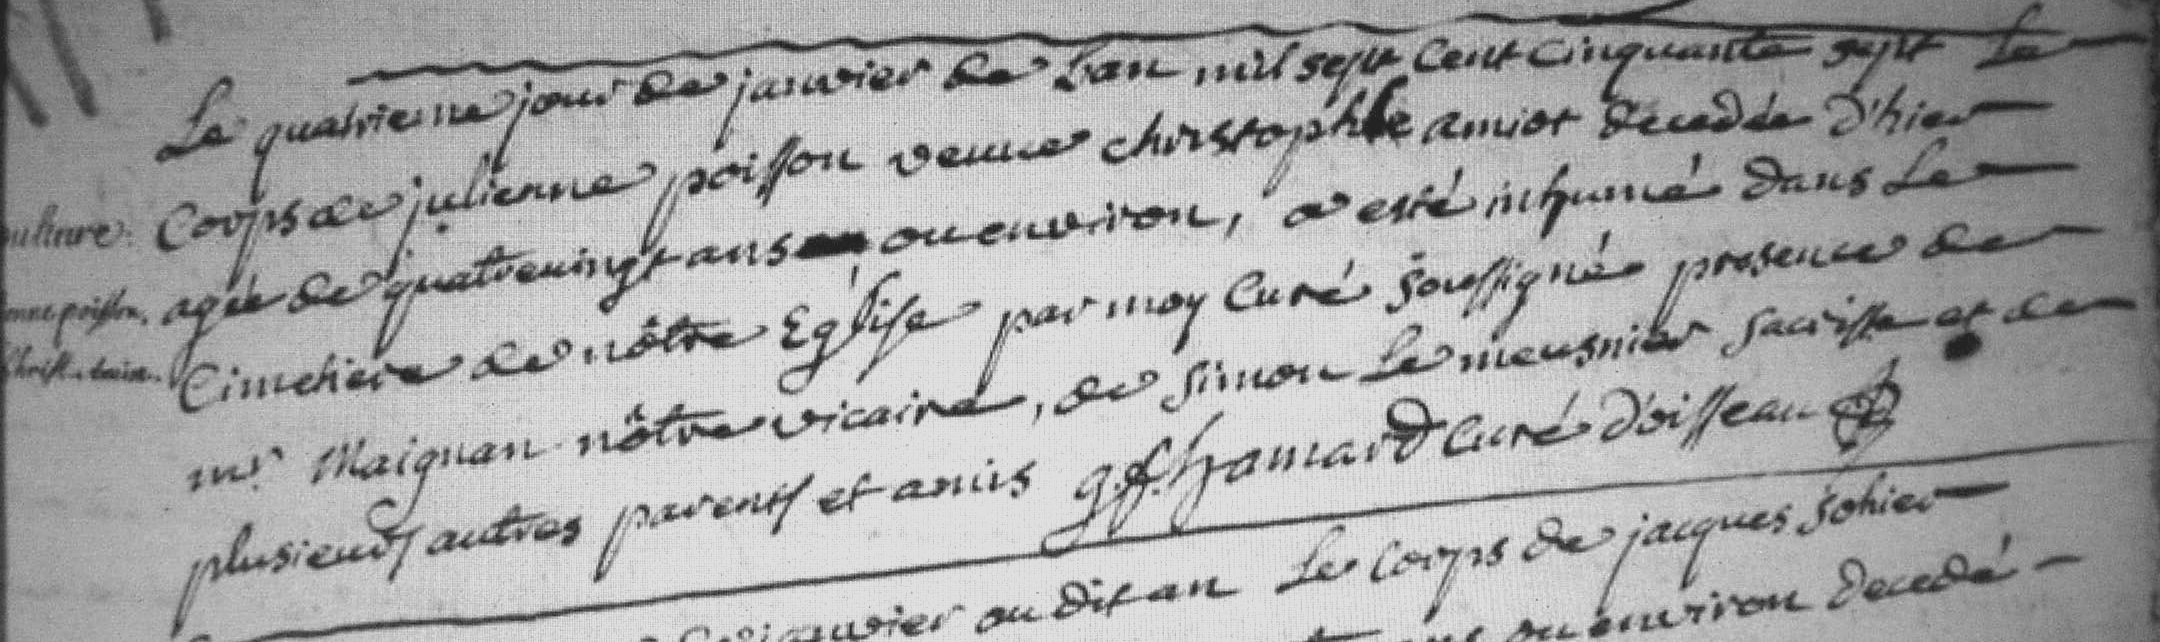 Le quatrieme jour de janvier de Lan mil sept Cent Cinquante sept Le
Corps de julienne poisson veuve christophle amiot decedée d'hier
agée de quatrevingt ans ou environ, a esté inhumé dans Le
Cimetiere de nôtre Eglise par moy Curé soussigné presence de
mr. Maignan nôtre vicaire, de simon Le meusnier sacriste et de
plusieurs autres parents et amis g.f. hamard Curé d'oisseau
poisson.
janvier ou dit an Le Corps de jacques sohier
ans ou environ decedé